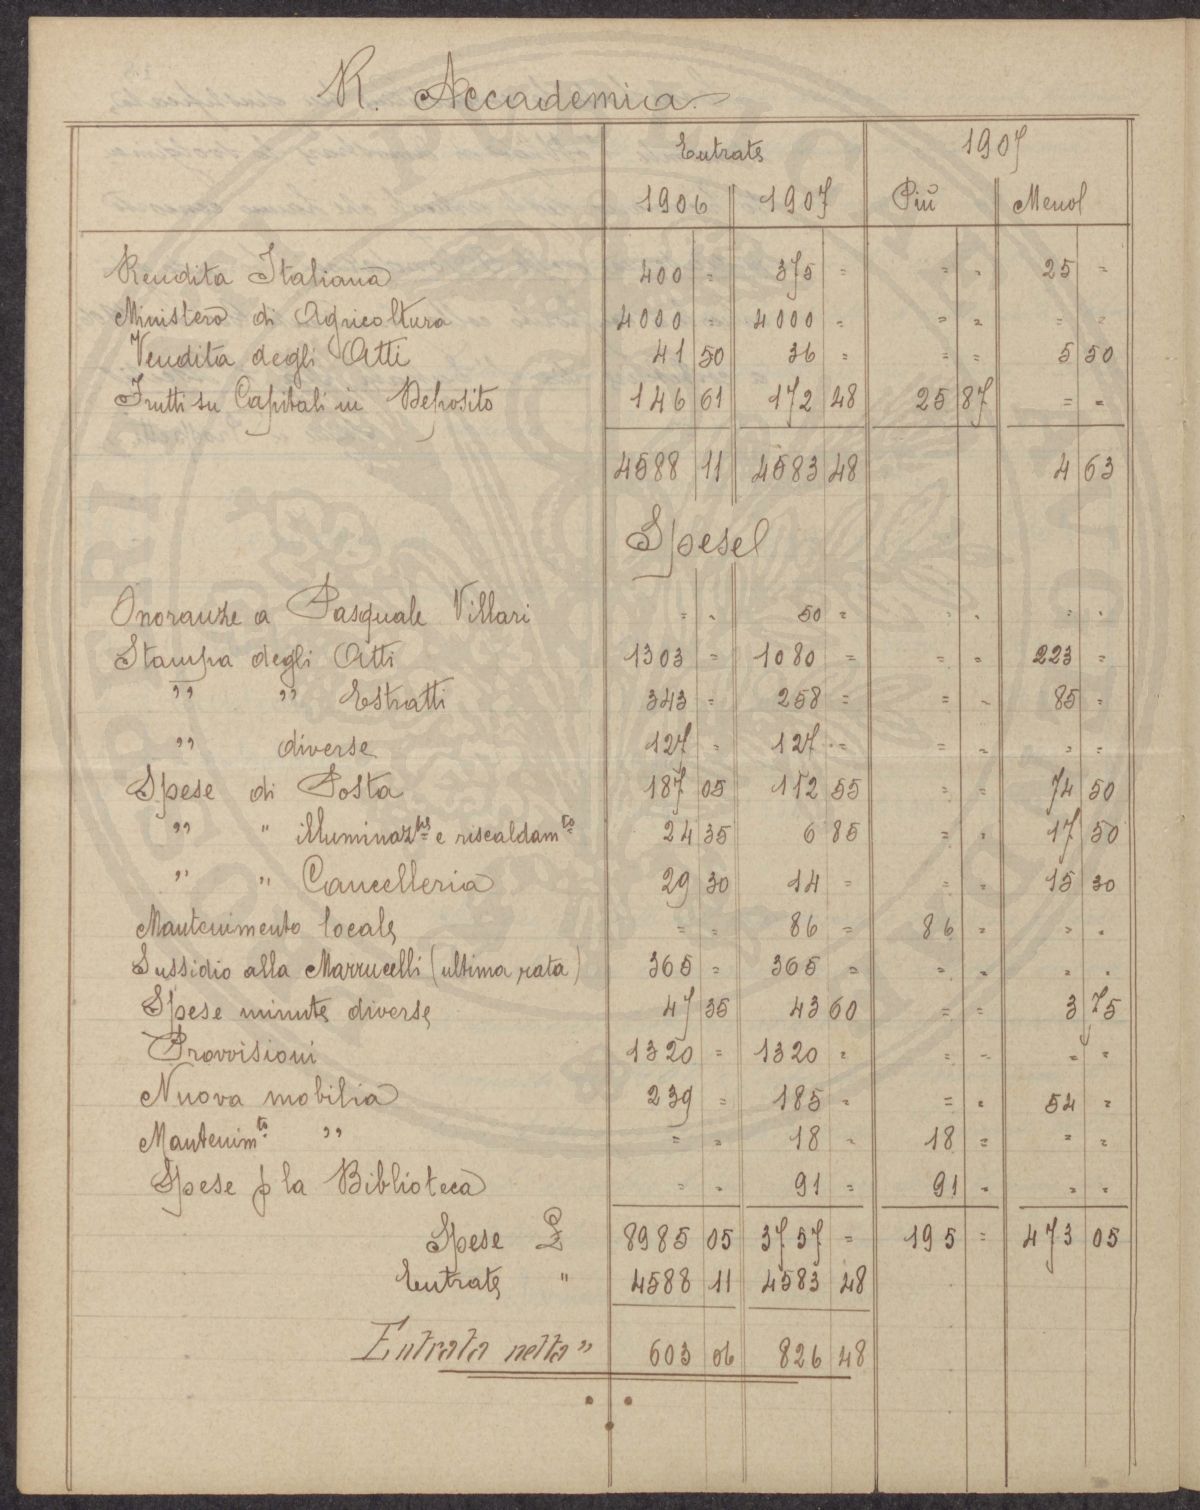 R. Accademia
Entrate 1907
1906 1907 Più Meno
Rendita Italiana 400 = 375 = = = 25 =
Ministero di Agricoltura 4000 = 4000 = = = = =
Vendita degli Atti 41 50 36 = = = 5 50
Frutti su Capitali in Deposito 146 61 172 48 25 87 = =
4588 11 4583 48 4 63
Spese
Onoranze a Pasquale Villari = = 50 = = = = =
Stampa degli Atti 1303 = 1080 = = = 223 =
" " Estratti 343 = 258 = = = 85 =
" diverse 127 = 127 = = = = =
Spese di Posta 187 05 112 55 = = 74 50
" " illuminaz.ne e riscaldam.to 24 35 6 85 = = 17 50
" " Cancelleria 29 30 14 = = = 15 30
Mantenimento locale = = 86 = 86 = = =
Sussidio alla Marrucelli (ultima rata) 365 = 365 = = = = =
Spese minute diverse 47 35 43 60 = = 3 75
Provvisioni 1320 = 1320 = = = = =
Nuova mobilia 239 = 185 = = = 54 =
Mantenim.to " = = 18 = 18 = = =
Spese p la Biblioteca = = 91 = 91 = = =
Spese £ 8985 05 3757 = 195 = 473 05
Entrate " 4588 11 4583 48
Entrata netta " 603 06 826 48